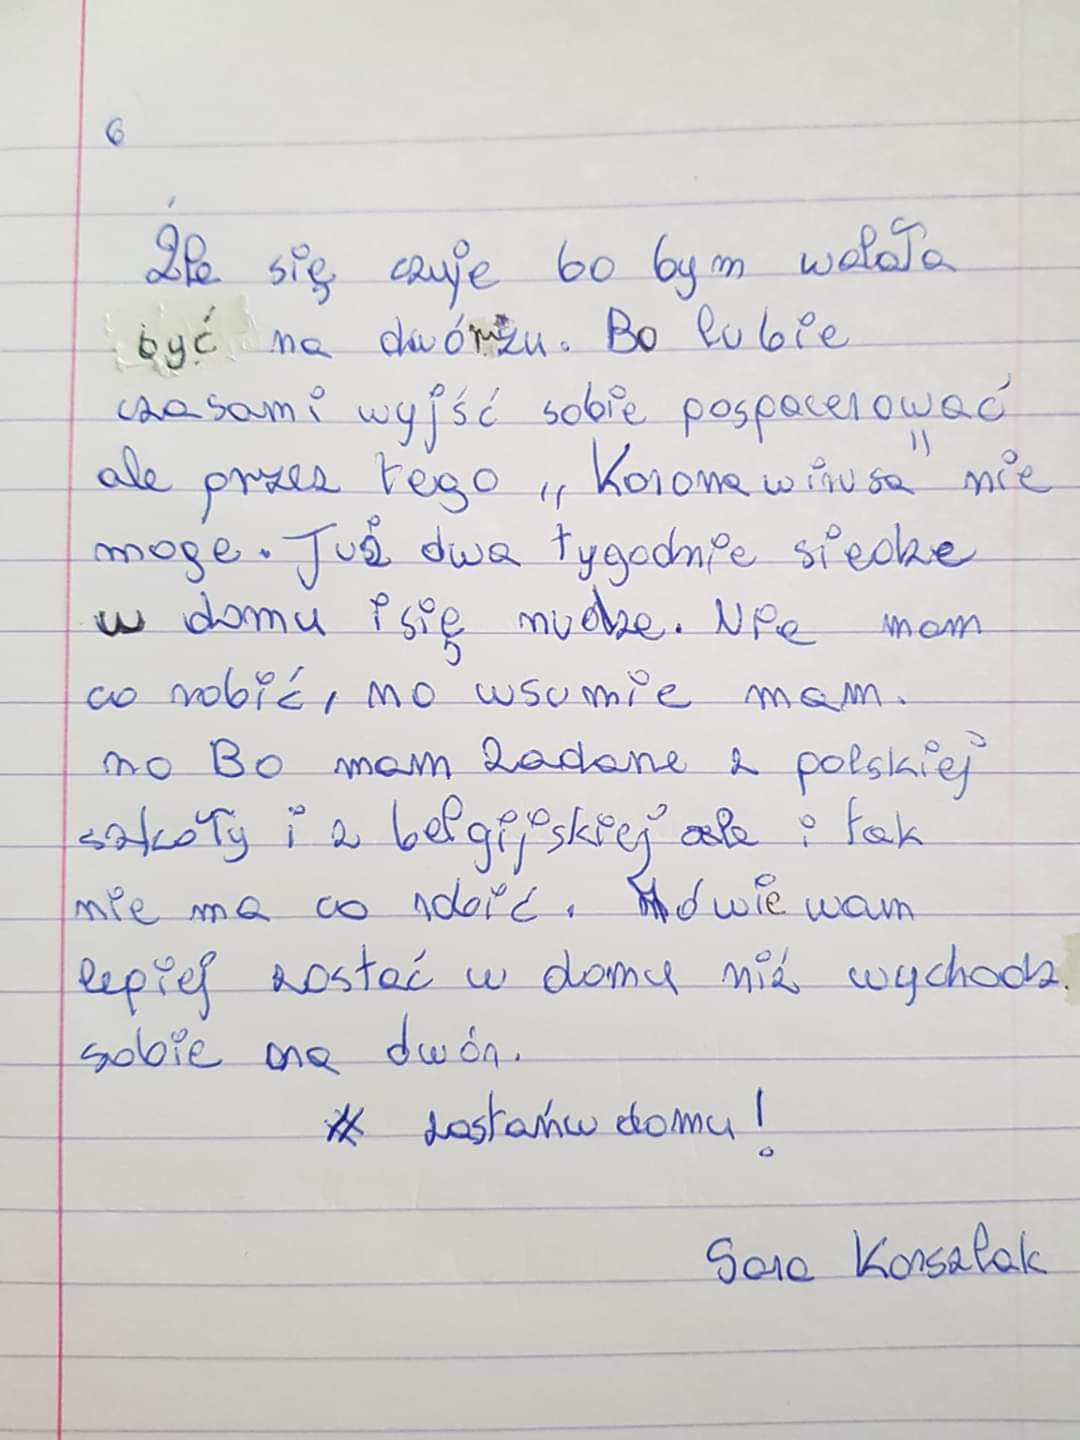 6
Źle się czuje bo bym wolała
być na dwórzu. Bo lubie
czasami wyjść sobie pospacerować
ale przez tego „Koronawirusa" nie
moge. Już dwa tygodnie siedze
w domu i się nudze. Nie mam
co robić, no wsumie mam.
no Bo mam zadane z polskiej
szkoły i z belgijskiej ale i tak
nie ma co robić. Mówie wam
lepiej zostać w domu niż wychodz.
sobie na dwór.
# zostańw domu!
Sara Korszlak